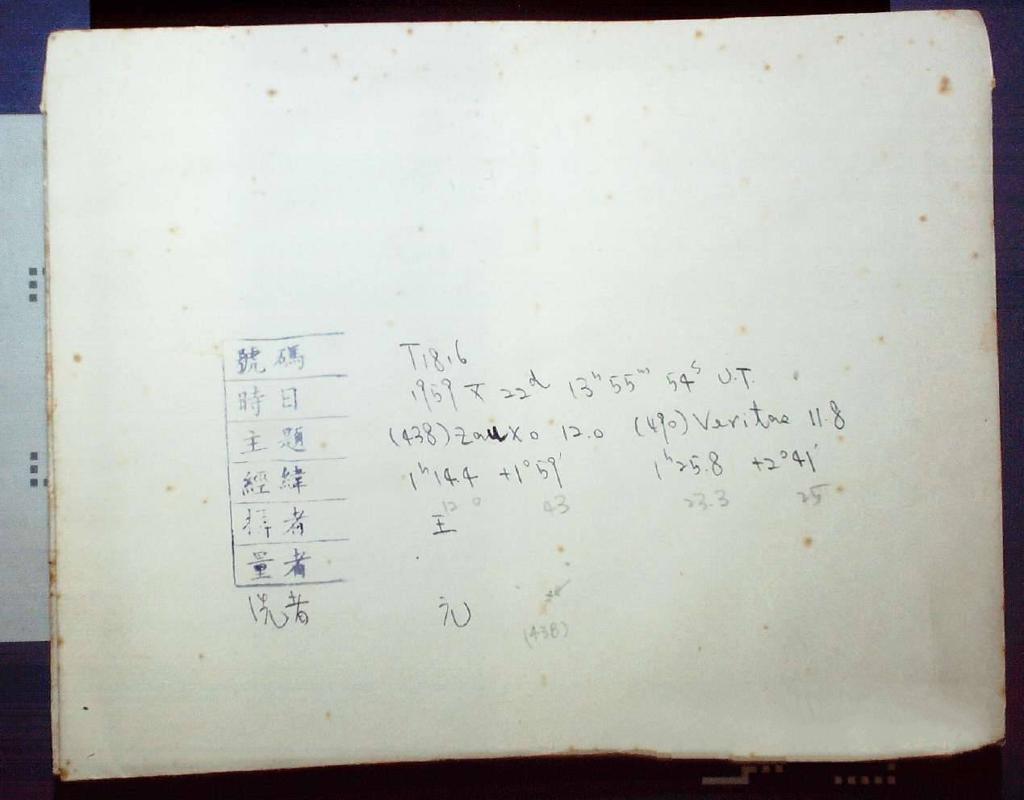 號碼 T1816
時日 1959 X 22d 13h 55m 54s U.T.
主題 (438) Zeuxo 12.0 (490) Veritas 11.8
經緯 1h14.4 +1°59' 1h25.8 +2°41'
12 0 43 23.3 25
攝者 王
量者
洗者 元
(438)